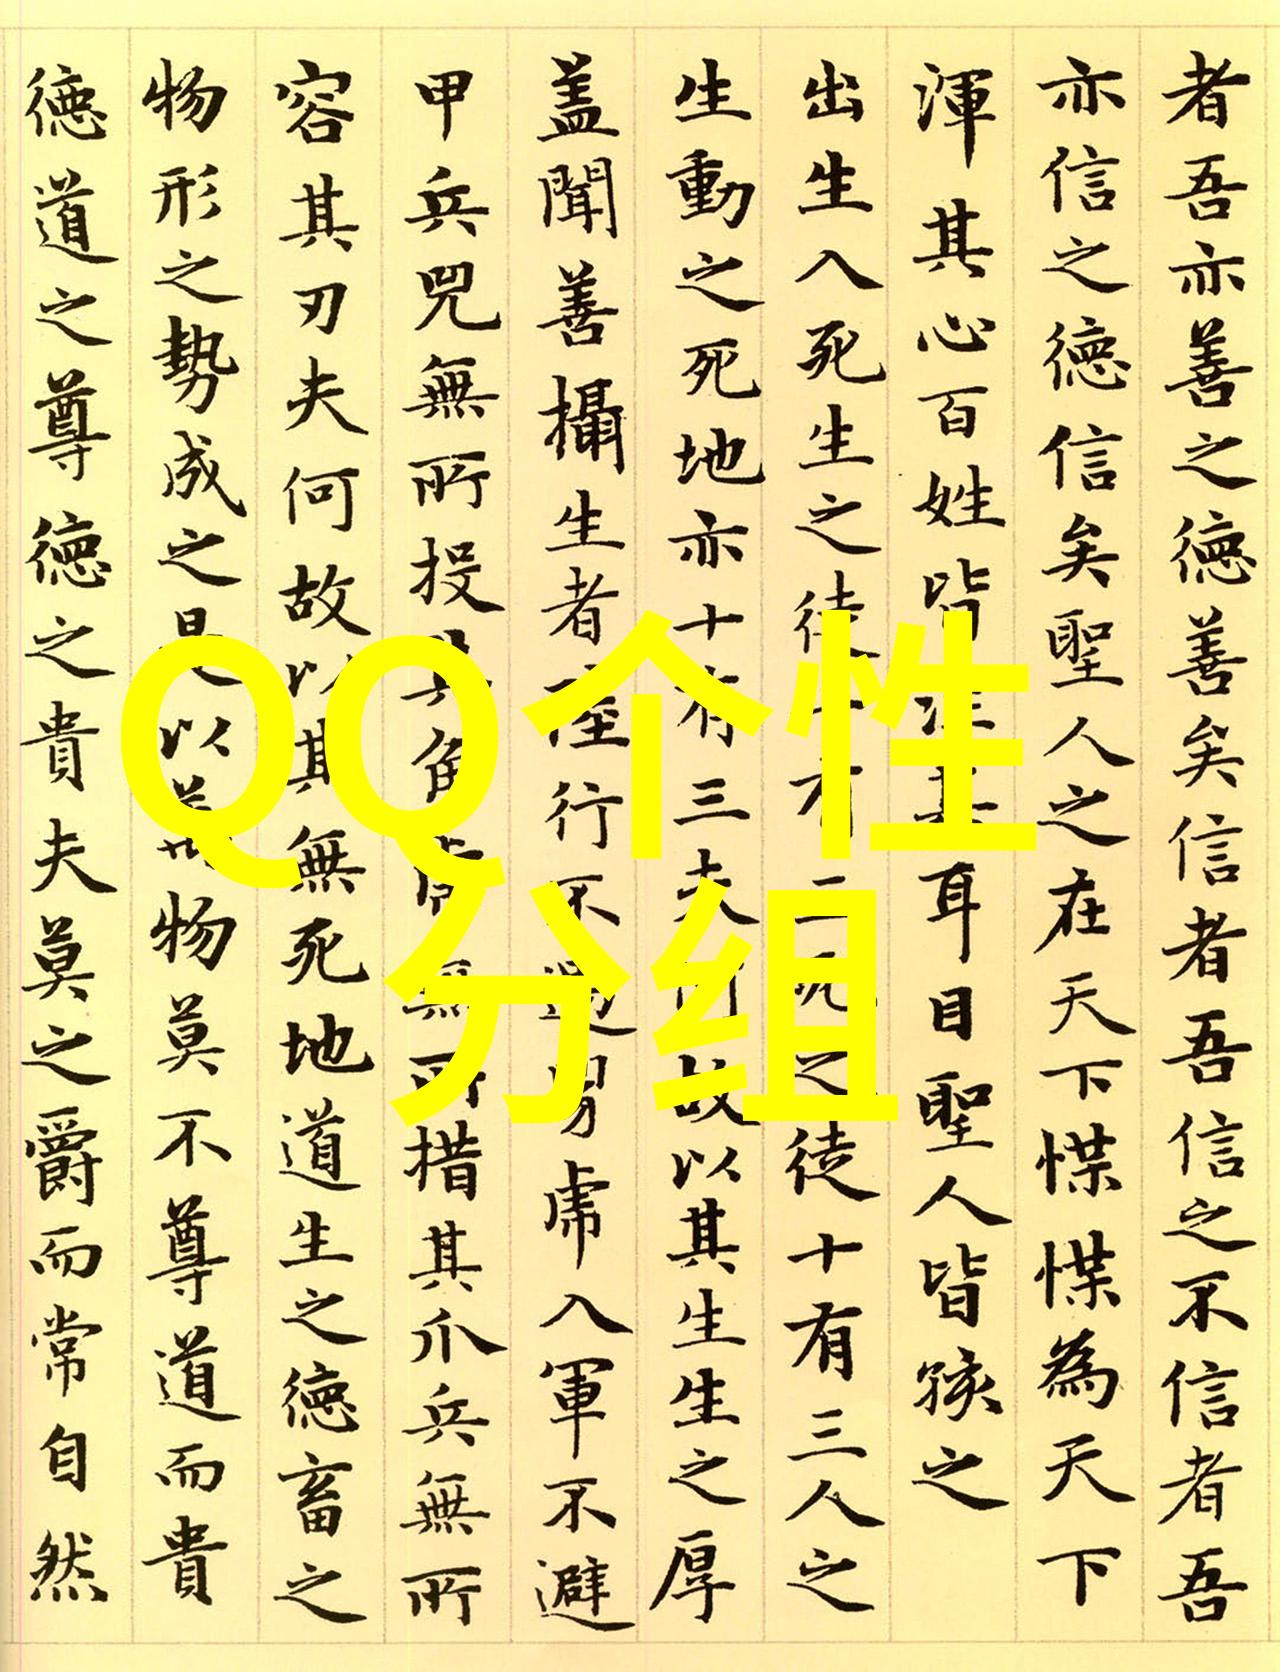 者吾亦善之德善矣信者吾信之不信者吾
亦信之德信矣聖人之在天下惵惵為天下
渾其心百姓皆其耳目聖人皆孩之
出生入死生之徒有三死之徒十有三人之
生動之死地亦十有三夫何故以其生生之厚
蓋聞善攝生者陸行不遇兕虎入軍不避
甲兵兕無所投其角虎無所措其爪兵無所
容其刃夫何故以其無死地道生之德畜之
物形之勢成之是以萬物莫不尊道而貴
德道之尊德之貴夫莫之爵而常自然
QQ个性
分组